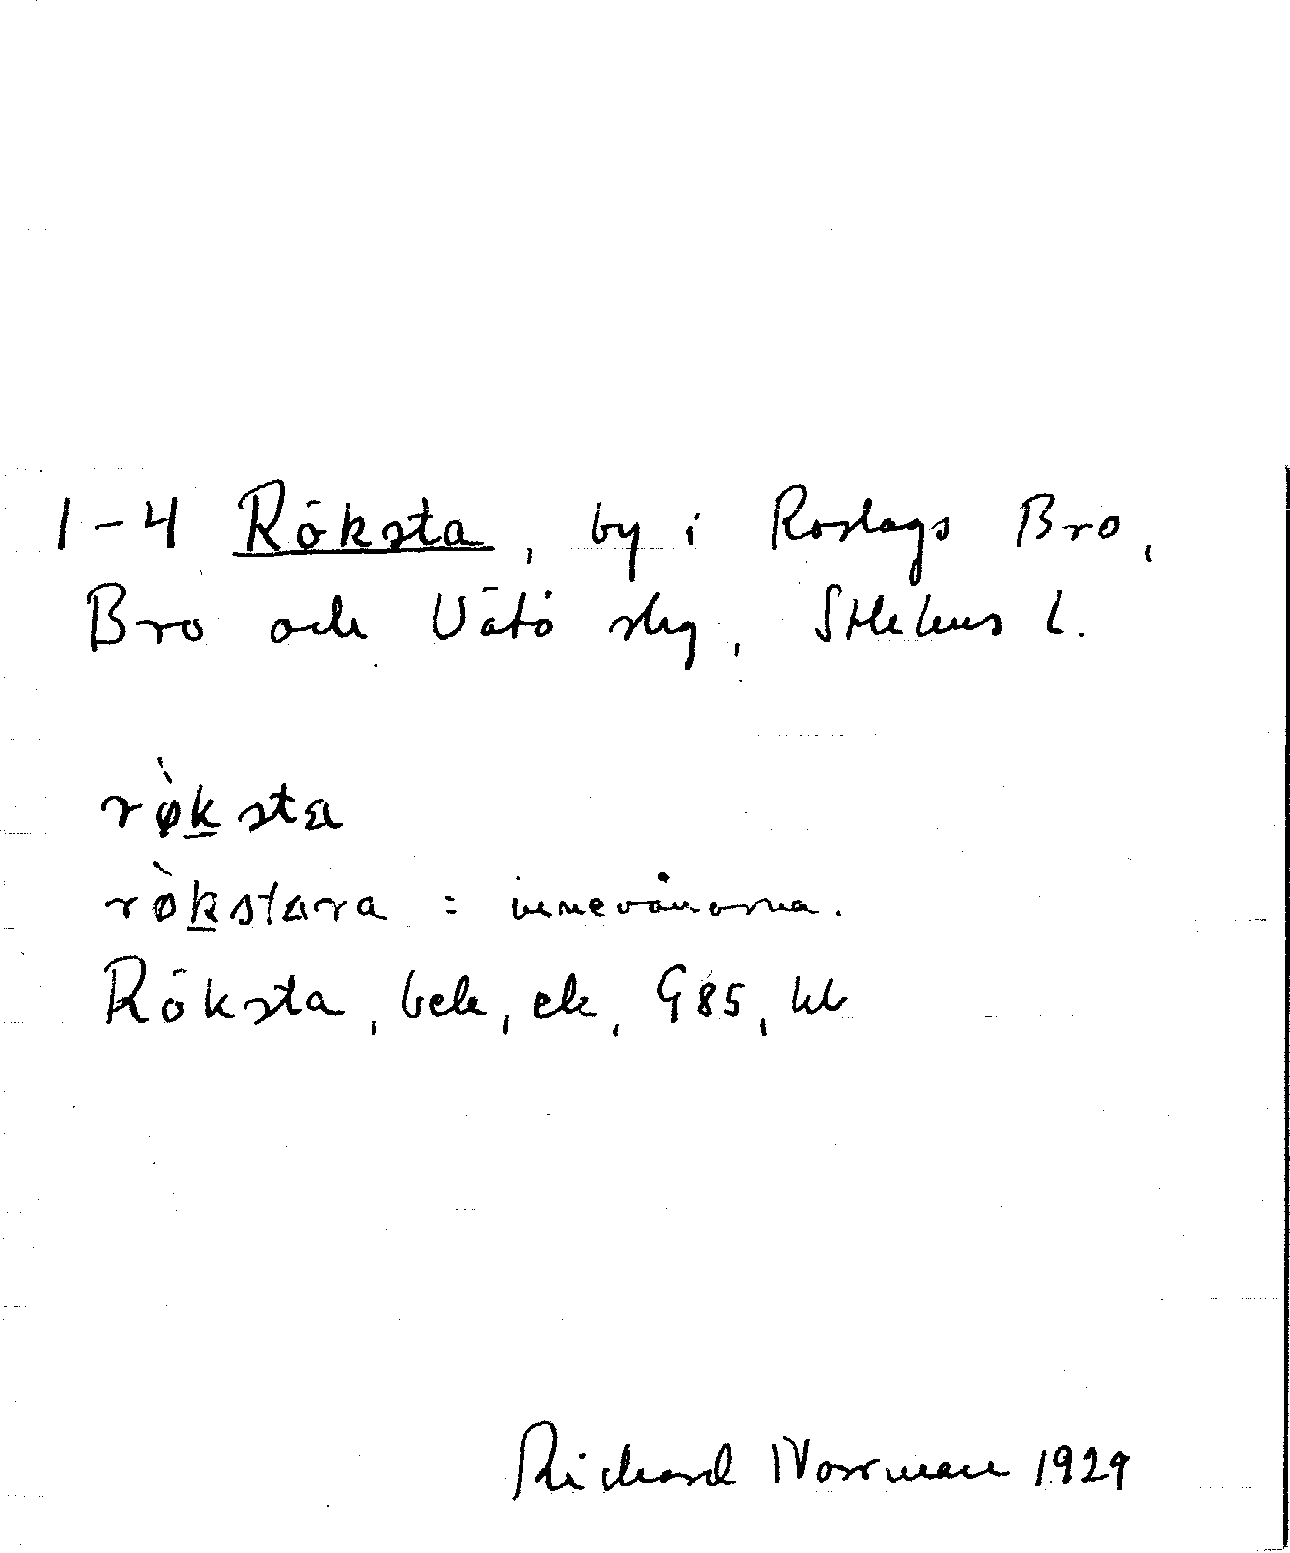 1-4 Röksta, by i Roslags Bro,
Bro och Vätö skg, Sthlms l.
rø̀ksta
rø̀kstara = innevånarna.
Röksta, bek, ek, G85, kb
Richard Norrman 1929